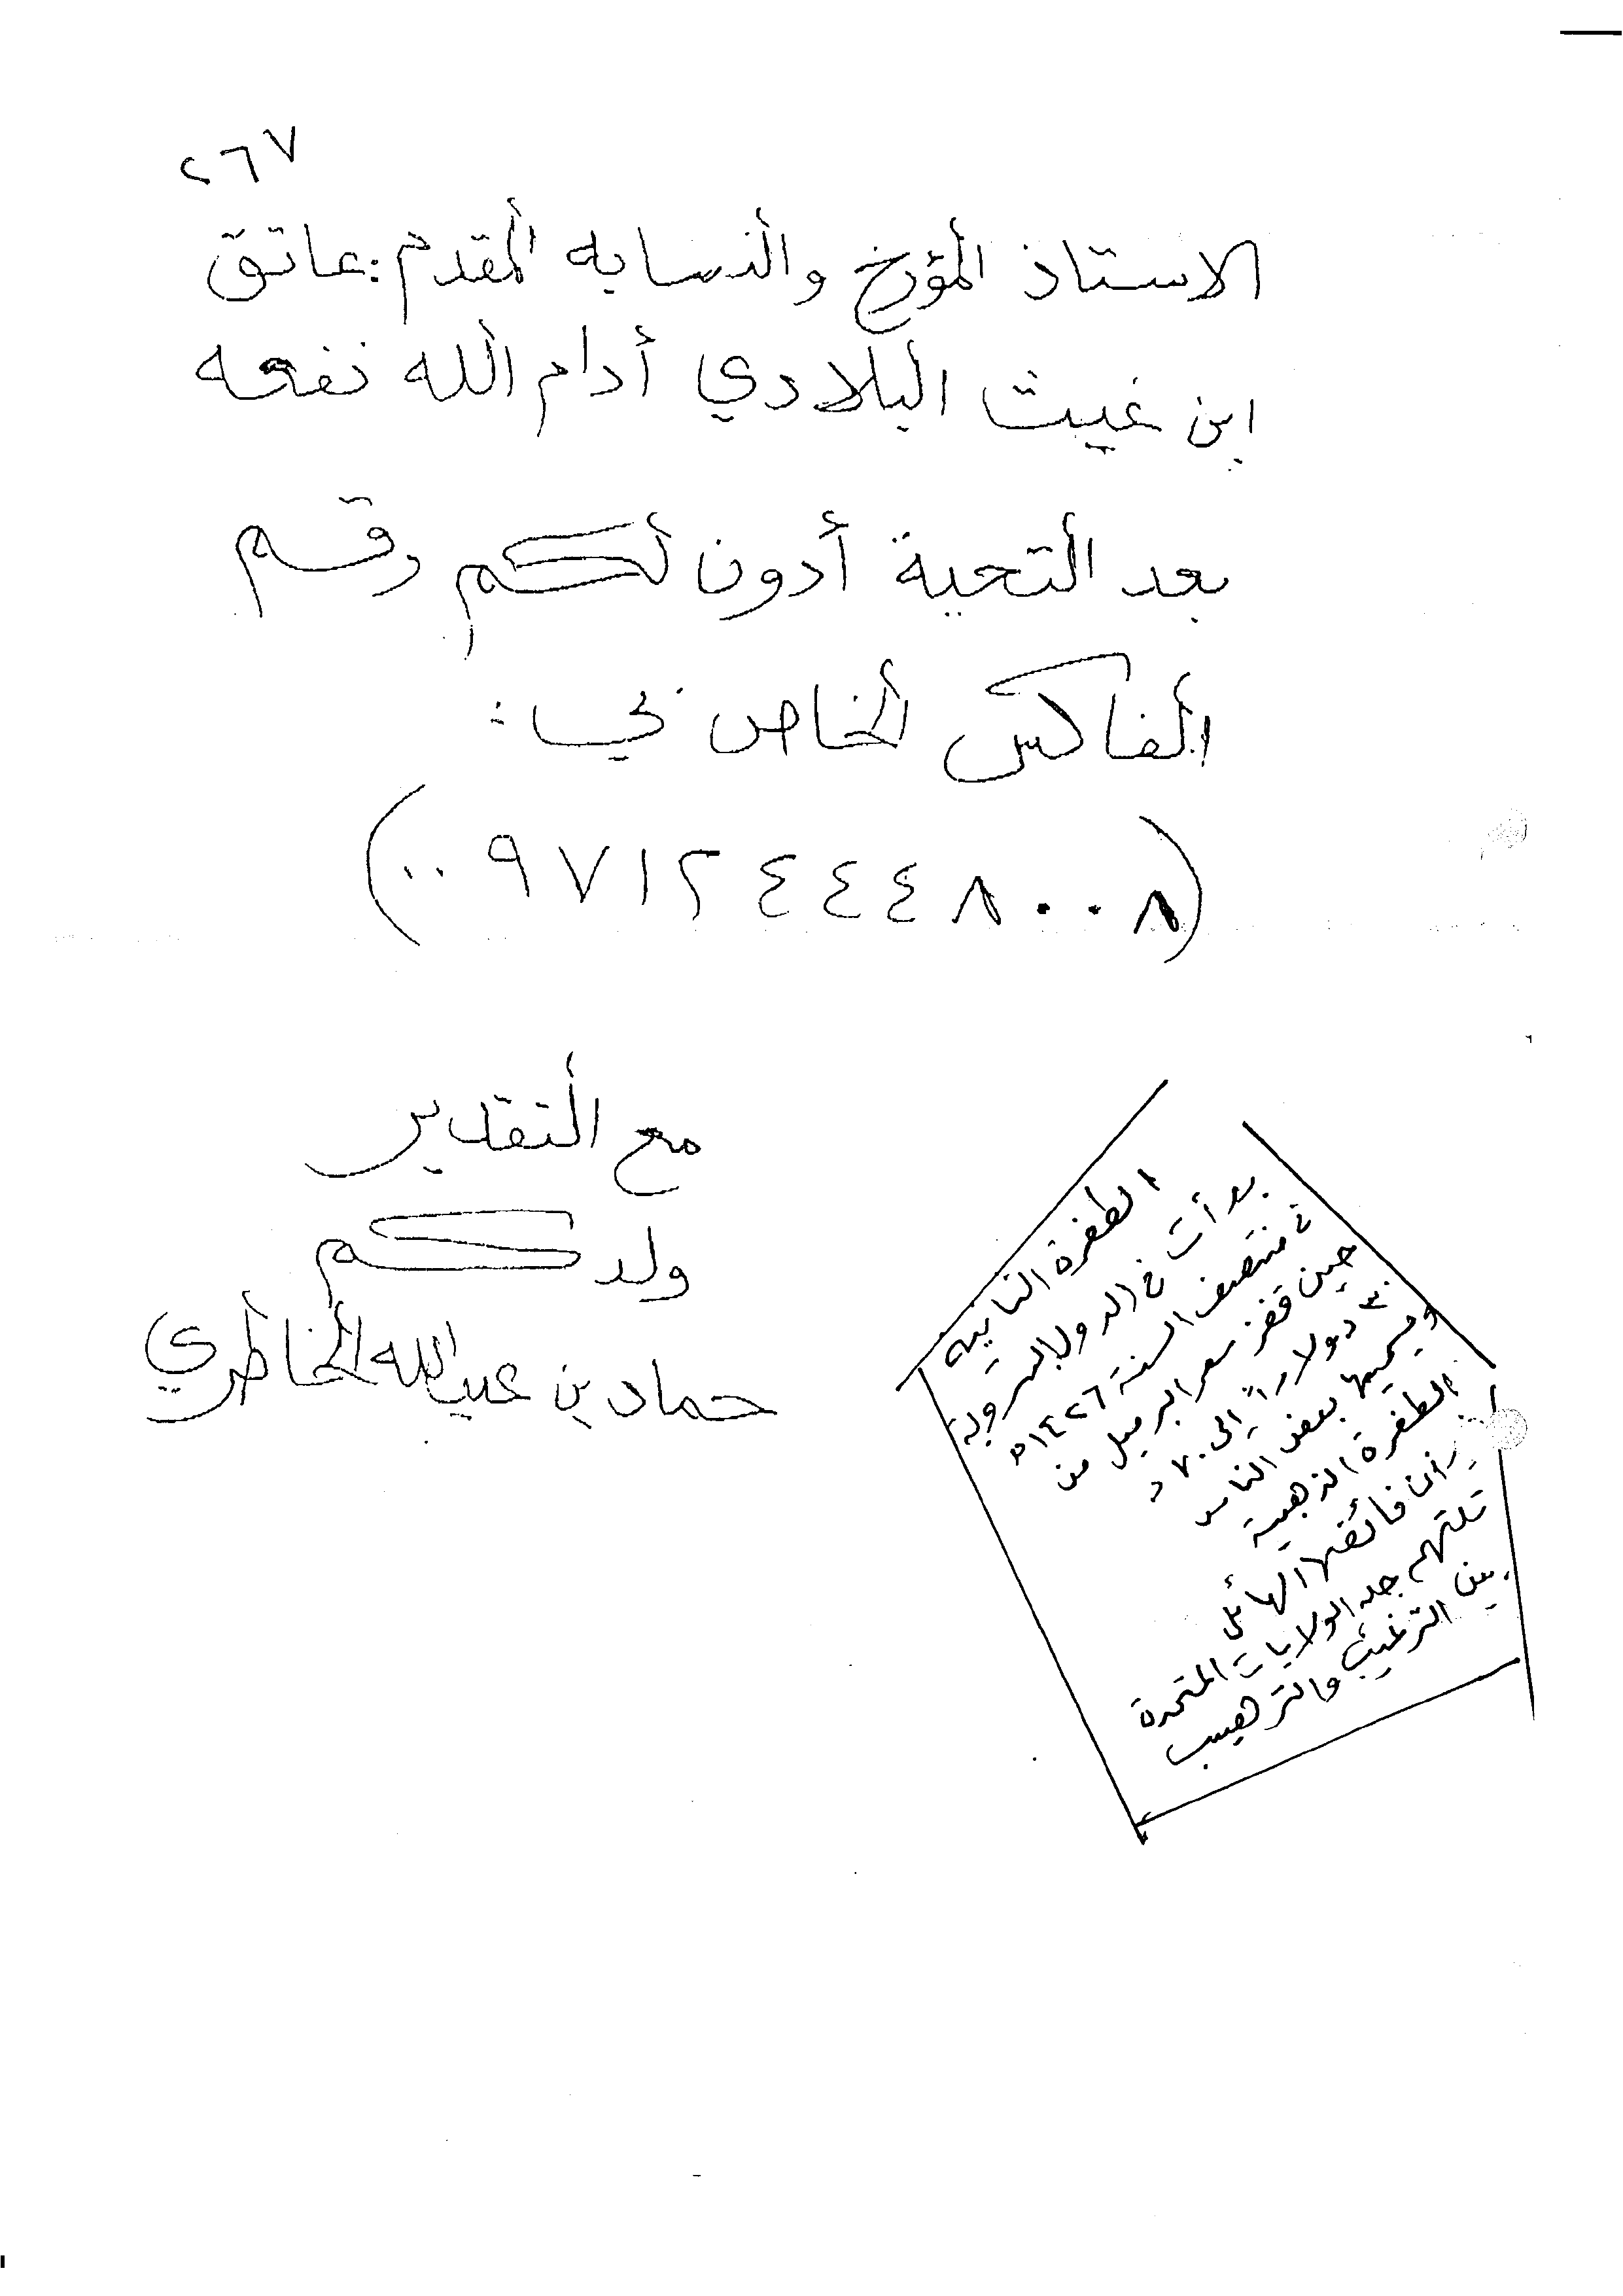 ٢٦٧
الاستاذ المؤرخ والنسابه المقدم : عاتق
ابن غيث البلادي أدام الله نفعه
بعد التحية أدون لكم رقم
الفاكس الخاص بي :
(٠٠٩٧١٢٤٤٤٨٠٠٨)
مع التقدير
ولدكم
حماد بن عبدالله الخاطري
الطفرة الثانيه
بدأت في الدول البترولية
في منتصف السنة ١٤٢٦ه
حين قفز سعر البرميل من
٣٠ دولاراً إلى ٧٠ د
ويسميها بعض الناس
الطفرة الذهبية
أن فائضها الهائل
تلتهم جله الولايات المتحدة
بين الترغيب والترهيب